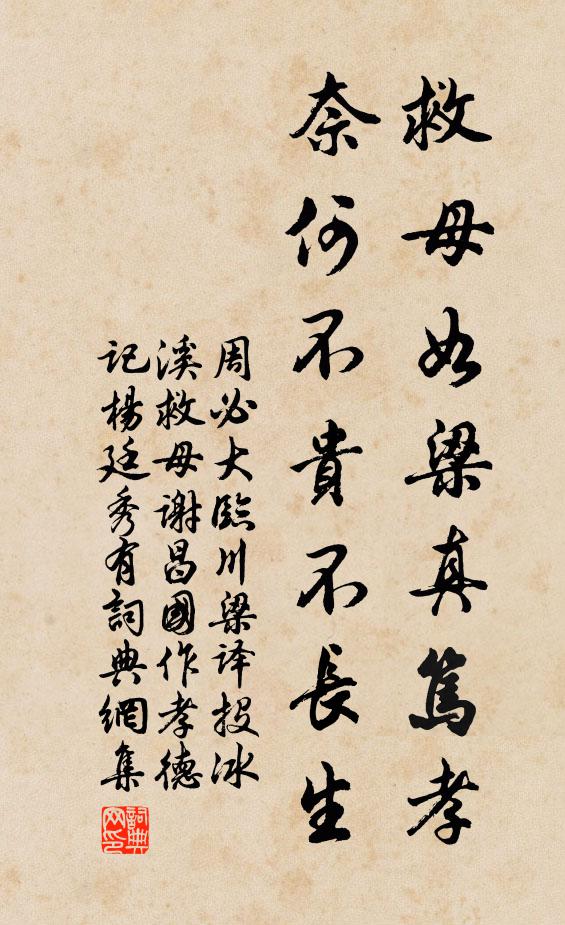 救母如梁真篤孝
奈何不貴不長生
周必大臨川梁译投冰
溪救母謝昌國作孝德
記楊廷秀有詞典網集
詞典网印